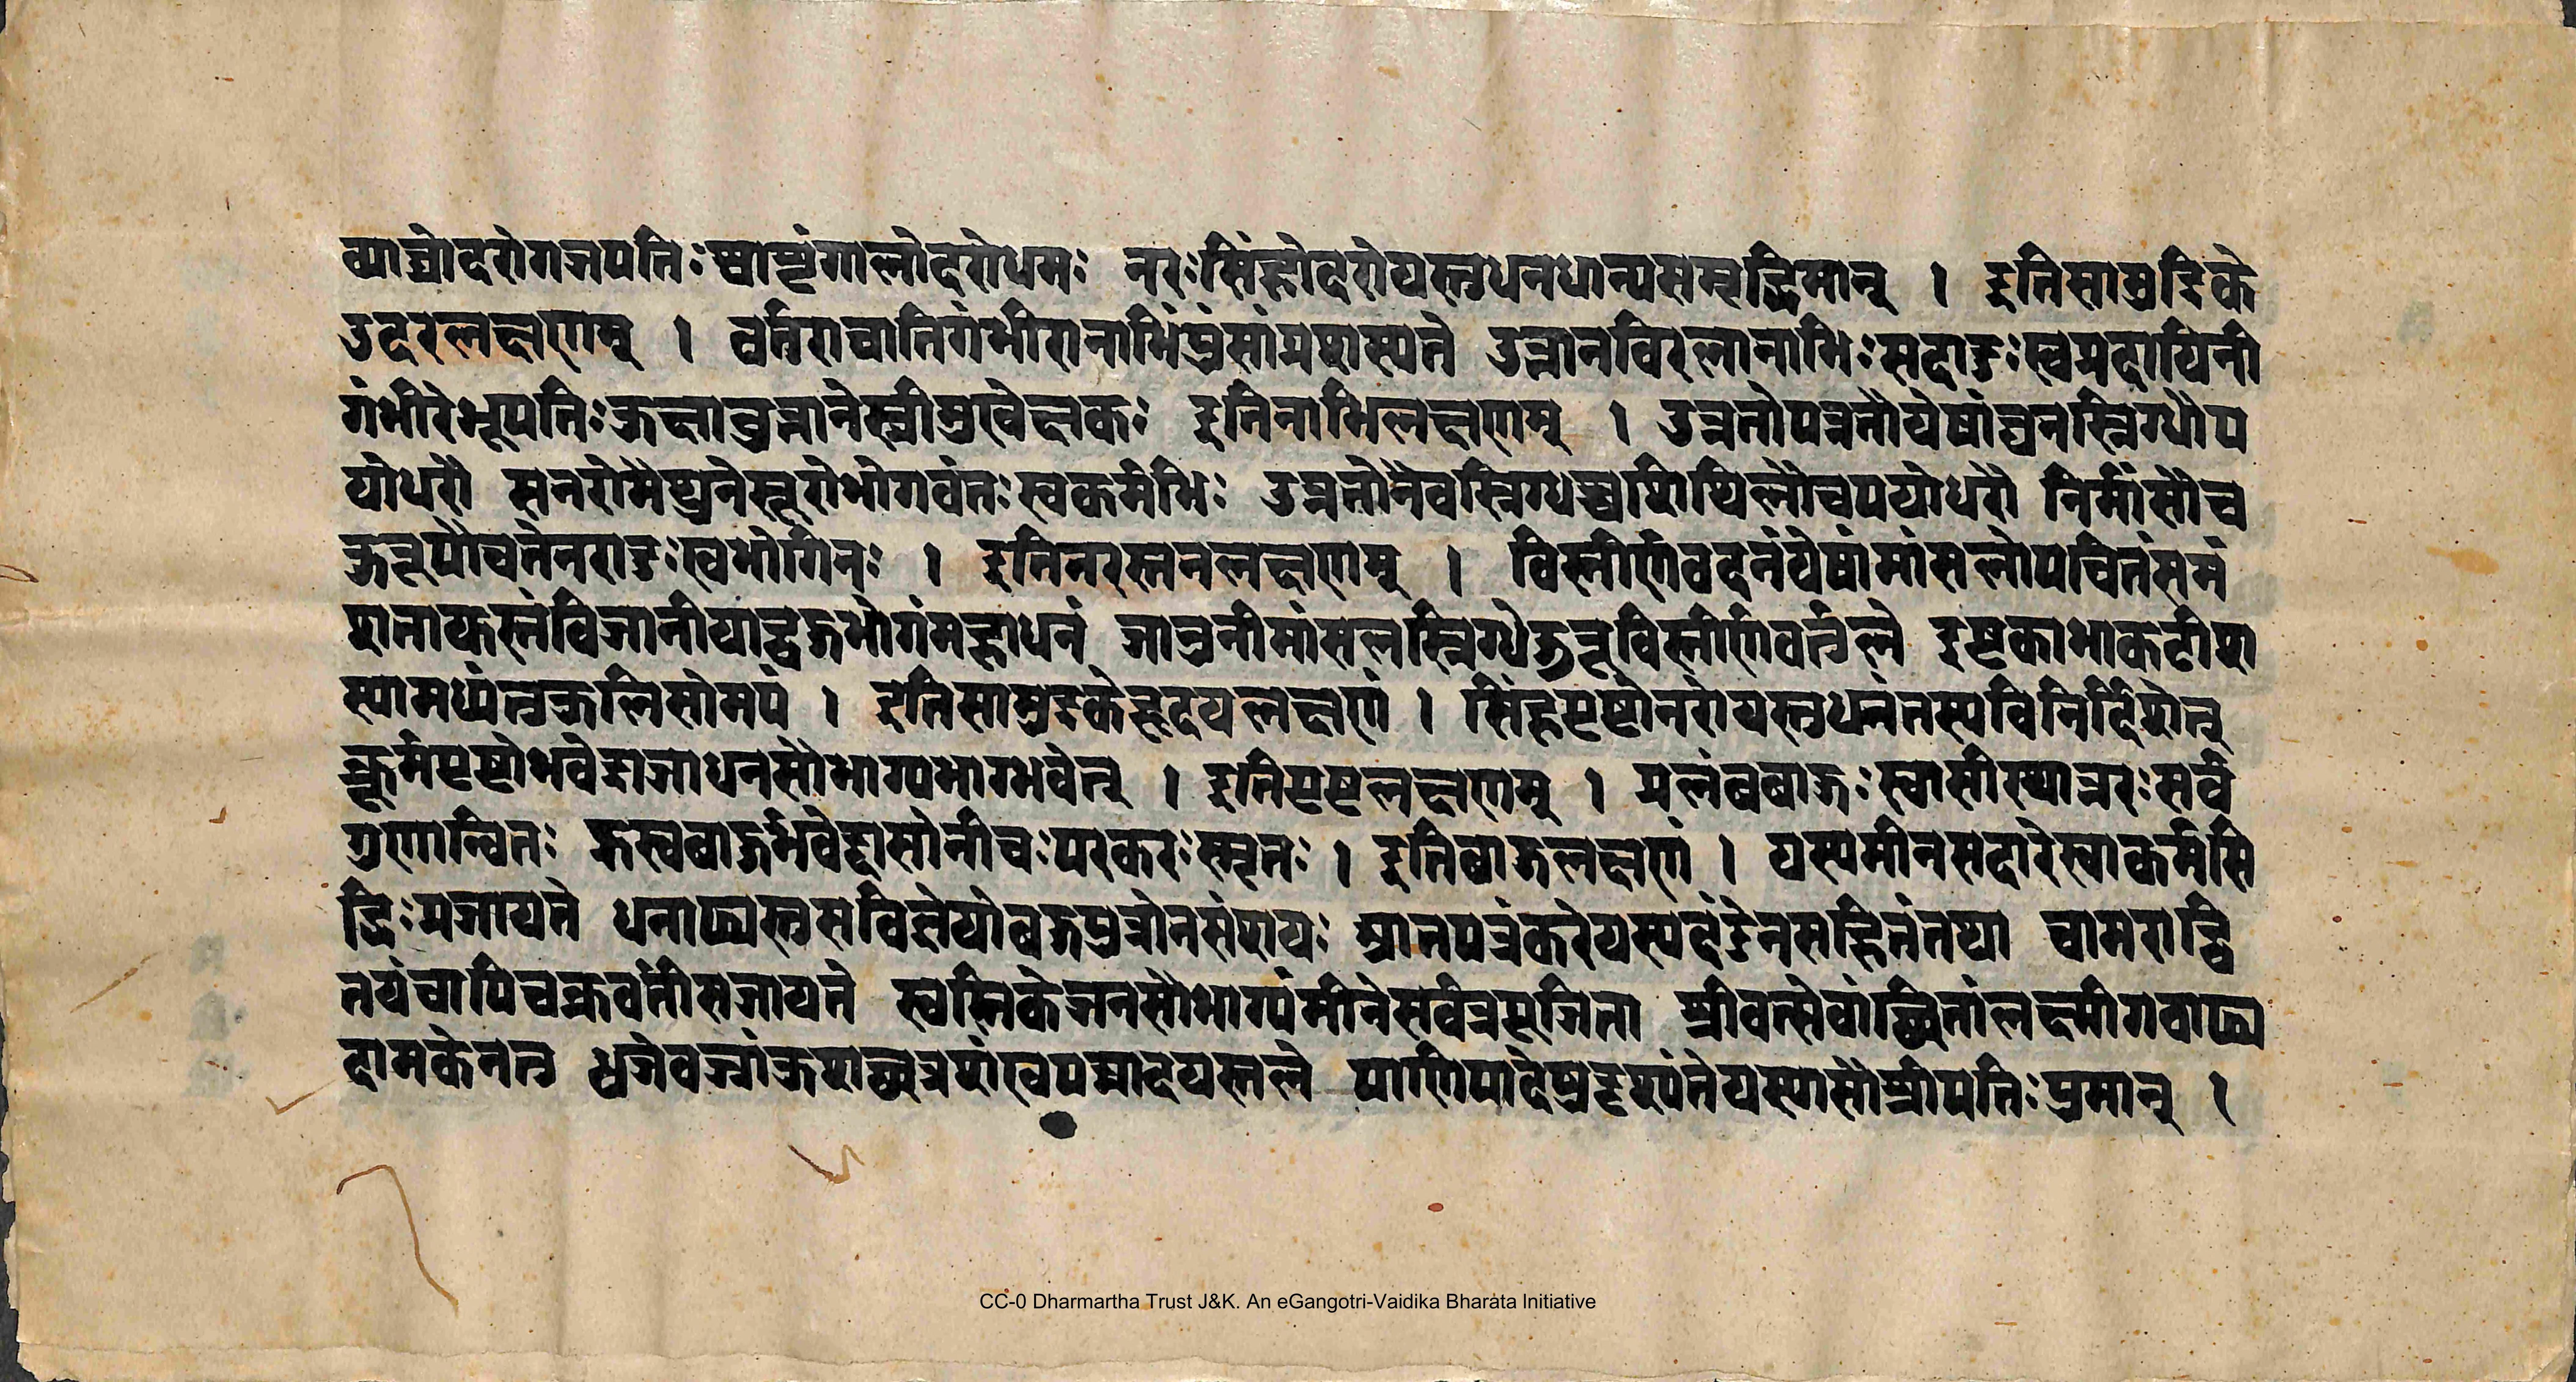 व्याघ्रोदरोगजपतिःश्वाशृगालोदरोधमः नरःसिंहोदरोयस्तुधनधान्यसमृद्धिमान् । इतिसामुद्रिके
उदरलक्षणम् । वर्तिराचातिगंभीरानाभिंपुंसांप्रशस्यते उत्तानविरलानाभिःसदादुःखप्रदायिनी
गंभीरेभूपतिःकुक्षावुत्तानेस्त्रीमुखेक्षकः इतिनाभिलक्षणम् । उन्नतोपन्नतौयेषांघनस्निग्धौप
योधरौ सनरोमैथुनेसूरोभोगवंतःस्वकर्मभिः उन्नतोनैवस्निग्धश्चशिथिलौचपयोधरौ निर्मांसौच
कुरूपौचतेनरादुःखभागिनः । इतिनरस्तनलक्षणम् । विस्तीर्णवदनंयेषांमांसलोपचितंसमं
शतायुस्तंविजानीयाद्बहुभोगंमहाधनं जानुनीमांसलस्निग्धेऊरूविस्तीर्णवर्तुले इष्टकाभाकटीशा
स्यामध्यंतुकुलिसोमपं । इतिसामुद्रकेहृदयलक्षणं । सिंहपृष्टोनरोयस्तुधनंतस्यविनिर्दिशेत्
कूर्मपृष्टोभवेद्राजाधनसौभाग्यभाग्भवेत् । इतिपृष्टलक्षणम् । प्रलंबबाहुःस्वामीस्यान्नरःसर्व
गुणान्वितः ह्रस्वबाहुर्भवेद्दासोनीचःपरकरःस्मृतः । इतिबाहुलक्षणं । यस्यमीनसदारेखाकर्मसि
द्धिःप्रजायते धनाढ्यस्तुसविज्ञेयोबहुपुत्रोनसंशयः श्रातपत्रंकरेयस्यदंडेनसहितंतथा चामराद्वि
तयंचापिचक्रवर्तीसजायते स्वस्तिकेजनसौभाग्यंमीनेसर्वत्रपूजिता श्रीवत्सेवांछितांलक्ष्मीगवाढ्य
दामकेनतु ध्वजेवज्रांकुशच्छत्रशंखपद्मादयस्तले पाणिपादेषुदृश्यंतेयस्यासौश्रीपतिःपुमान् ।
CC-0 Dharmartha Trust J&K. An eGangotri-Vaidika Bharata Initiative